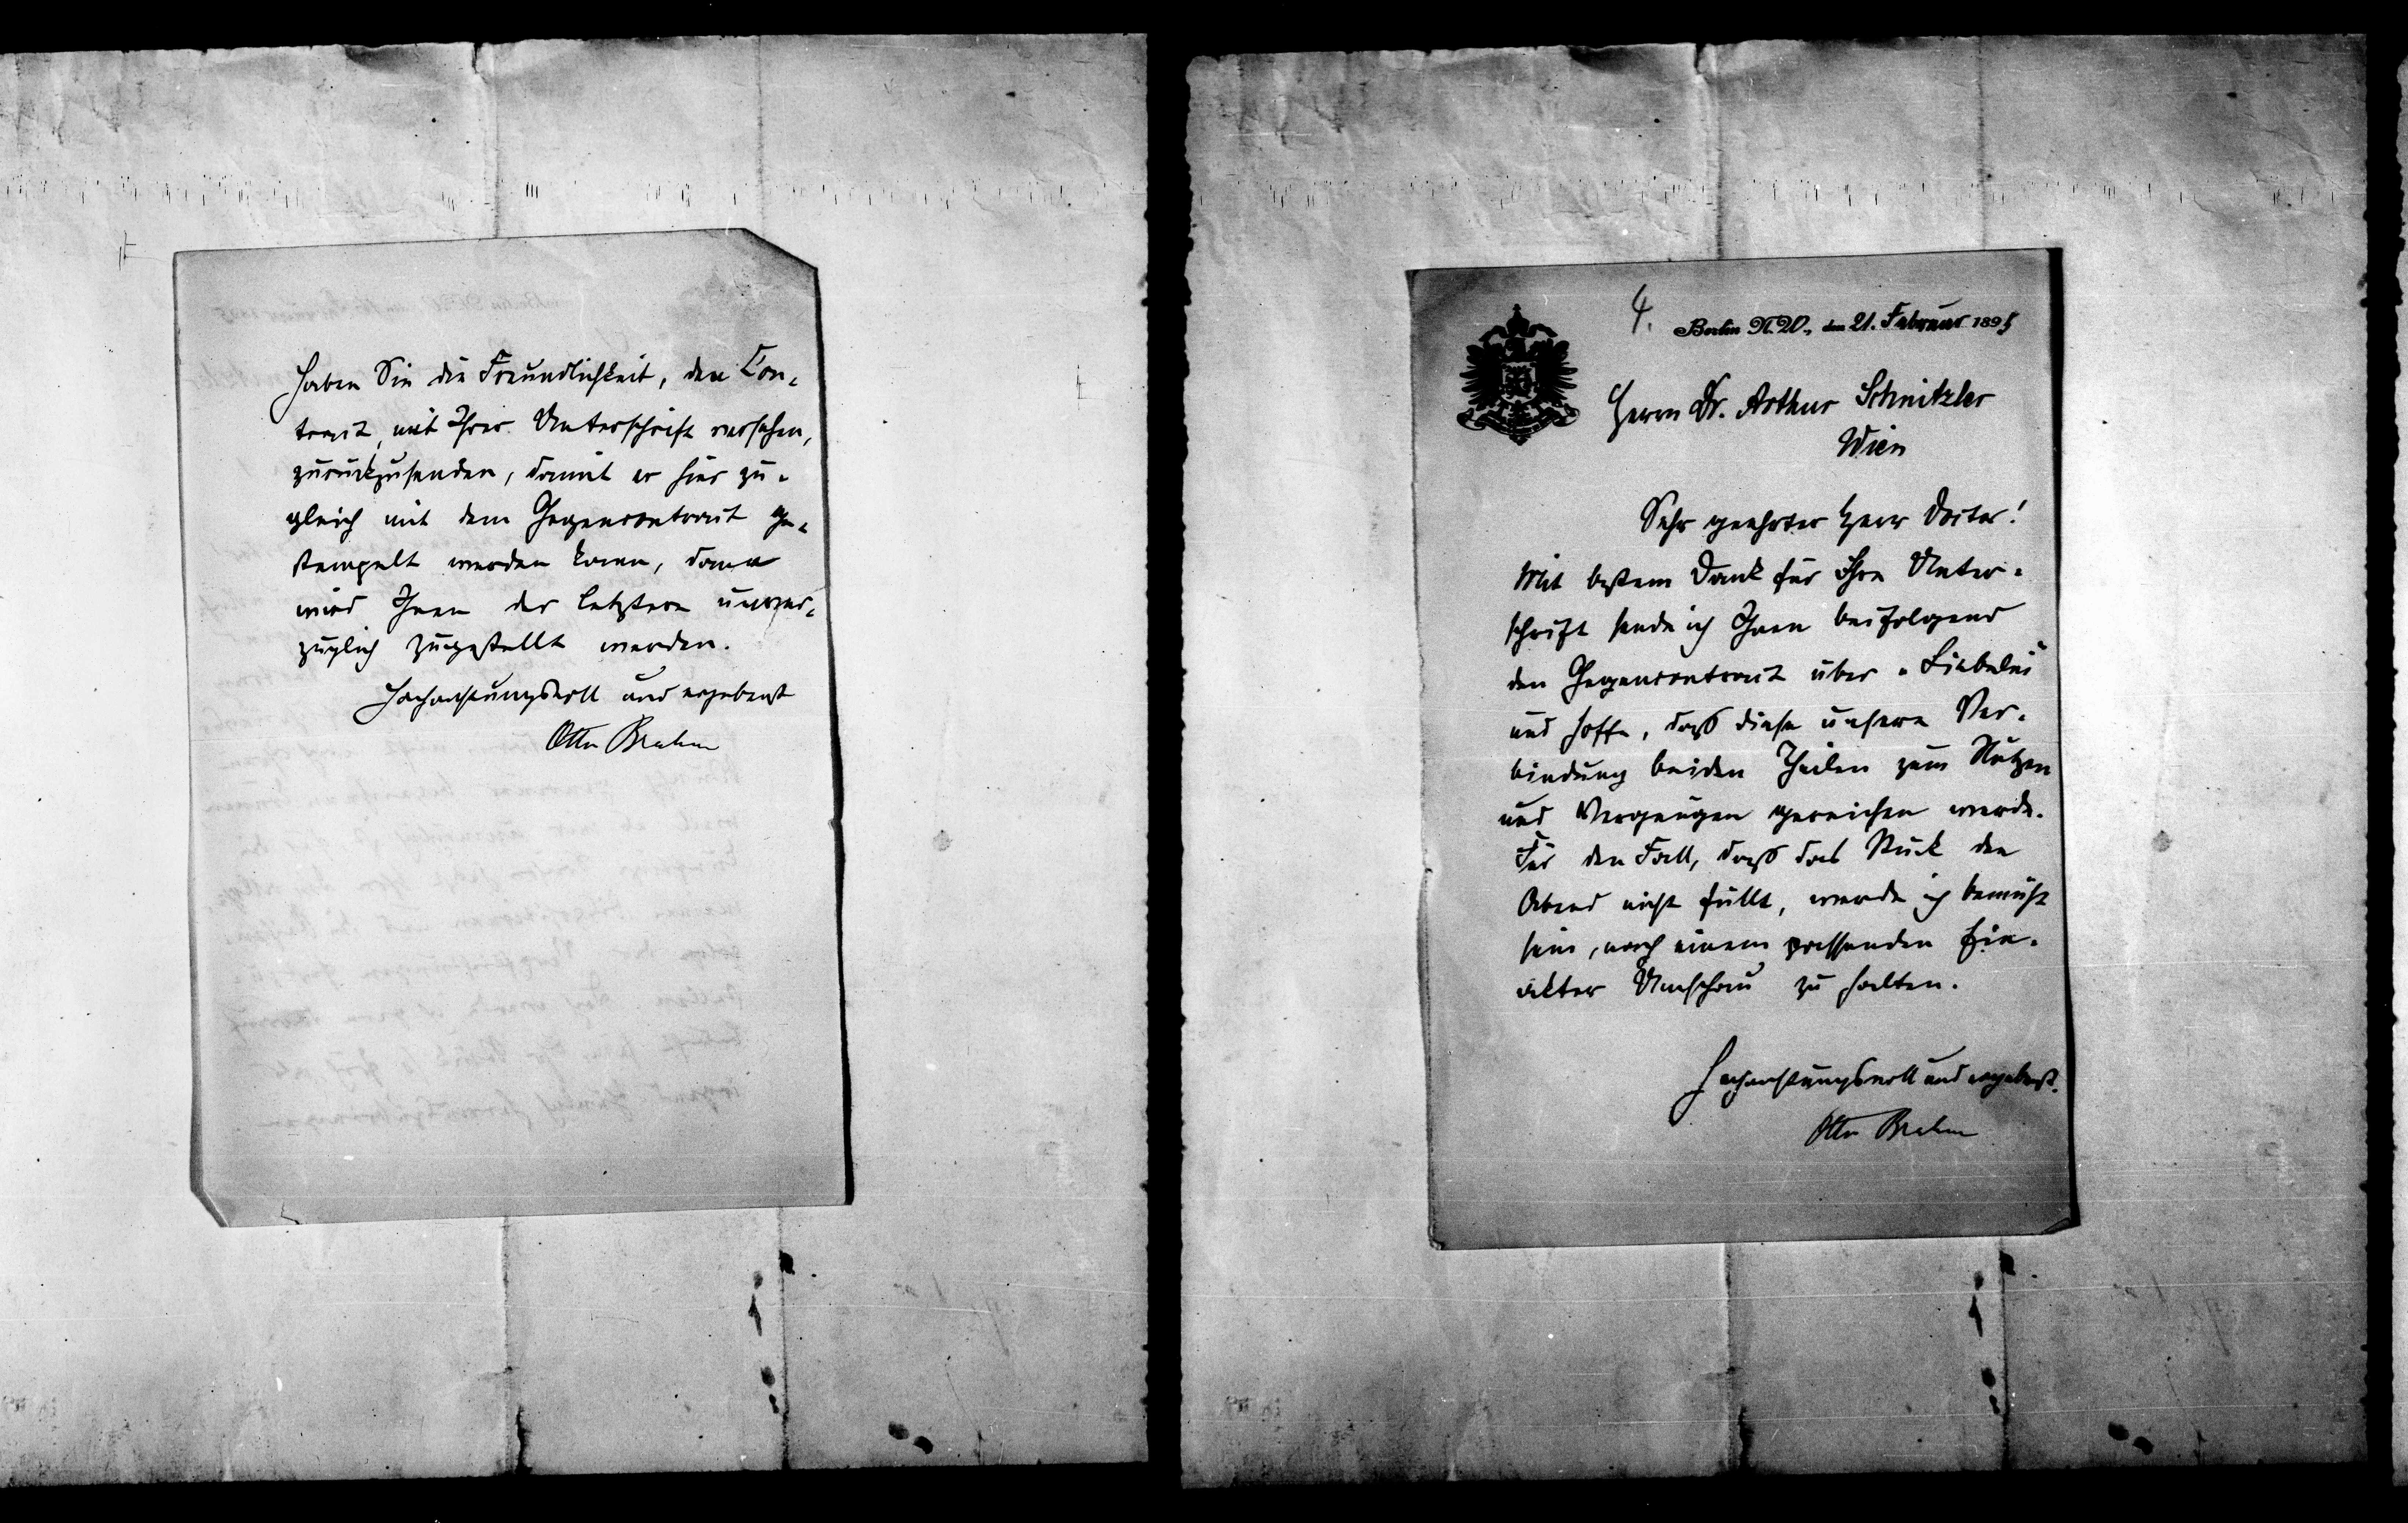 Haben Sie die Freundlichkeit, den Con-
tract, mit Ihrer Unterschrift versehen,
zurückzusenden, damit er hier zu-
gleich mit dem Gegencontract ge-
stempelt werden kann, dann
wird Ihnen der letztere unver-
züglich zugestellt werden.
Hochachtungsvoll und ergebenst
Otto Brahm
4.
Berlin N.W., den 21. Februar 1895
Herrn Dr. Arthur Schnitzler
Wien
Sehr geehrter Herr Doctor!
Mit bestem Dank für Ihre Unter-
schrift sende ich Ihnen beifolgend
den Gegencontract über „Liebelei“
und hoffe, daß diese unsere Ver-
bindung beiden Theilen zum Nutzen
und Vergnügen gereichen werde.
Für den Fall, daß das Stück den
Abend nicht füllt, werde ich bemüht
sein, nach einem passenden Ein-
akter Umschau zu halten.
Hochachtungsvoll und ergebenst
Otto Brahm